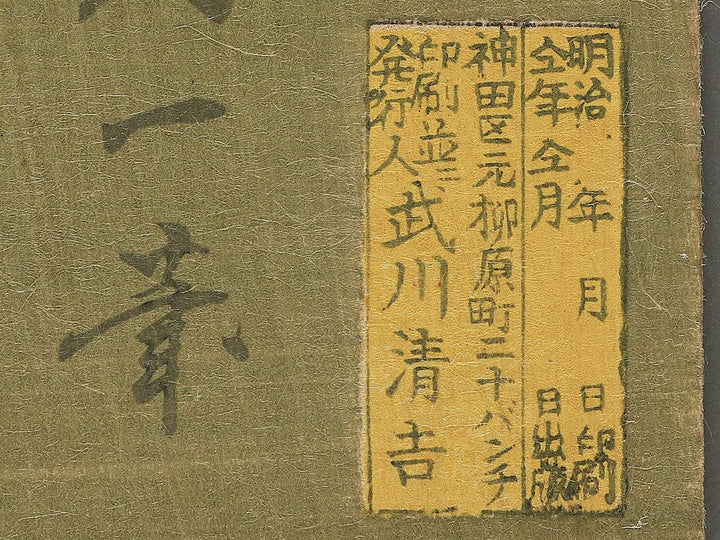 明治 年 月 日印刷
仝年仝月 日出版
神田区元柳原町二十バンチ
印刷並ニ
発行人 武川清吉
一筆